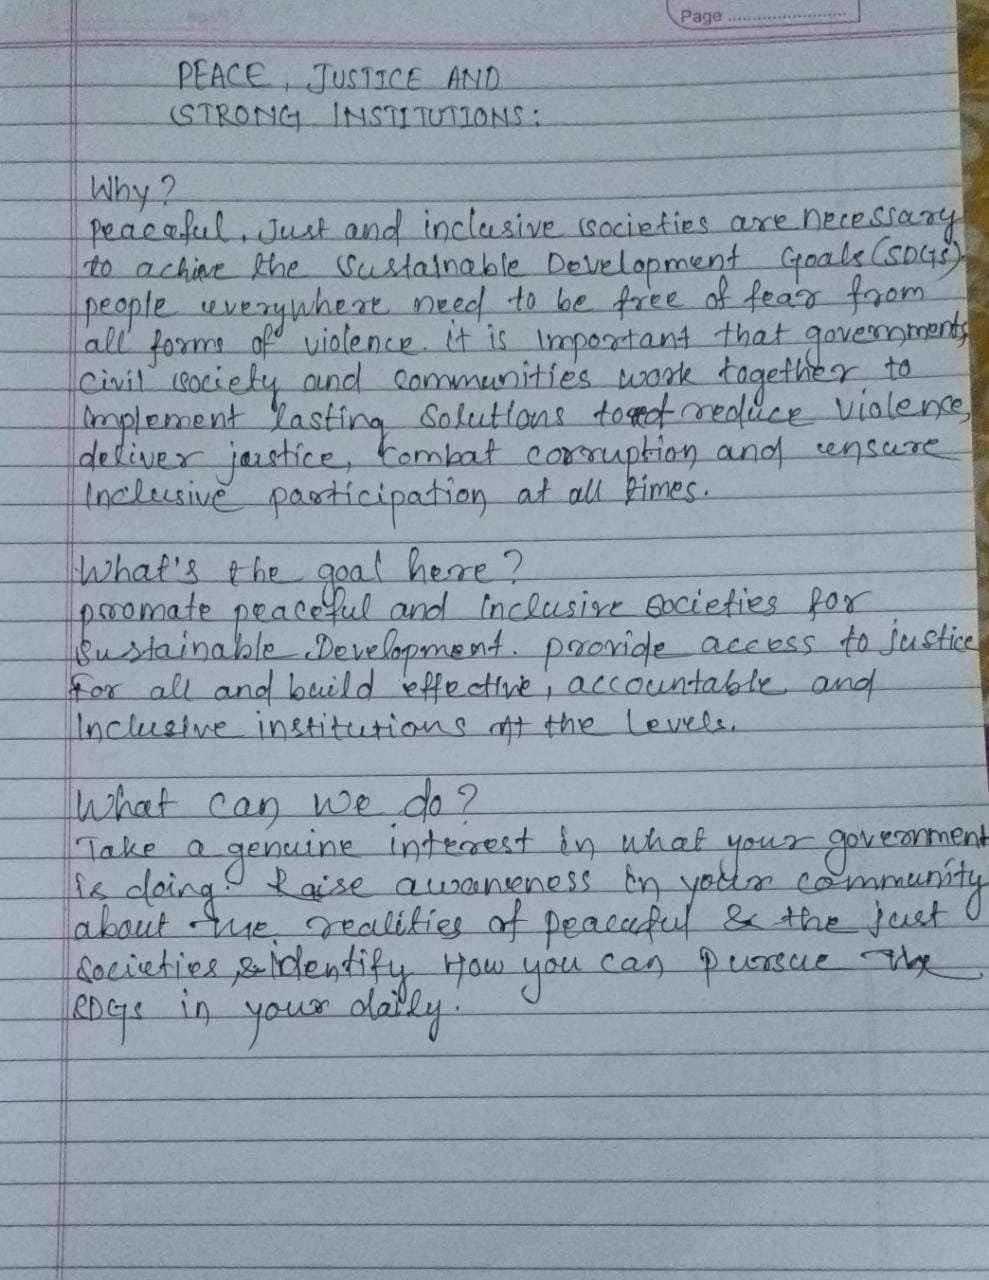 Page
PEACE, JUSTICE AND
STRONG INSTITUTIONS:
Why?
peaceful, Just and inclusive societies are necessary
to achive the Sustainable Development Goals (SDGs).
people everywhere need to be free of fear from
all forms of violence. it is important that governments,
civil society and communities work together to
implement lasting solutions to reduce violence,
deliver justice, combat corruption and ensure
Inclusive participation at all times.
What's the goal here?
promate peaceful and inclusive societies for
sustainable Development. provide access to justice
for all and build effective, accountable and
Inclusive institutions at the levels.
What can we do?
Take a genuine interest in what your government
is doing. Raise awareness in your community
about the realities of peaceful & the just
societies & identify How you can pursue the
SDGs in your daily.